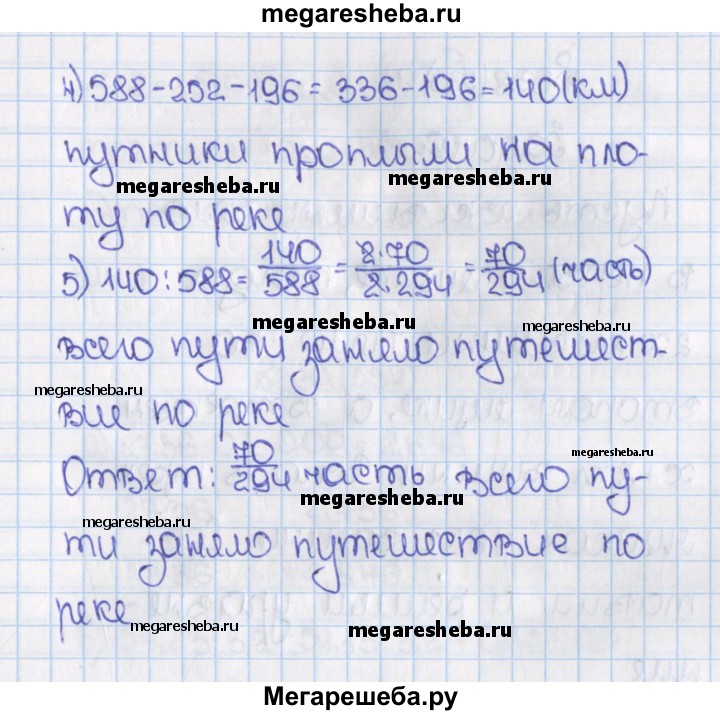 megaresheba.ru
4) 588-252-196= 336-196=140(км)
путники проплыли на пло-
megaresheba.ru
megaresheba.ru
ту по реке
5) 140:588= 140/588 = 2·70/2·294 = 70/294 (часть)
megaresheba.ru
megaresheba.ru
всего пути заняло путешест-
megaresheba.ru
вие по реке
megaresheba.ru
Ответ: 70/294 часть всего пу-
megaresheba.ru
megaresheba.ru
ти заняло путешествие по
реке
megaresheba.ru
megaresheba.ru
Мегарешеба.ру